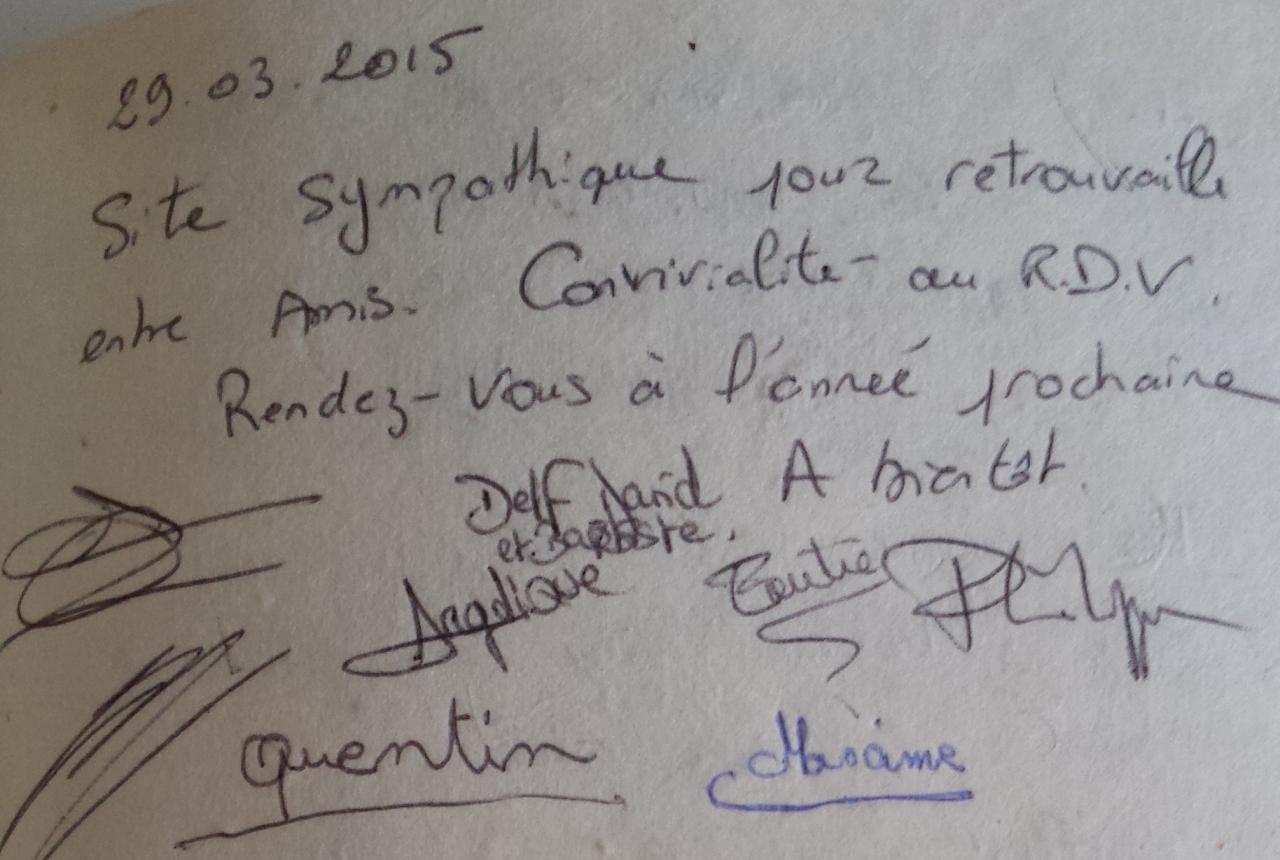 29.03.2015
Site Sympathique pour retrouvaille
entre Amis. Convivialité au R.D.V.
Rendez-Vous à l'année prochaine
Delf David A bientôt.
et Baptiste.
Angelique
Philippe
Quentin